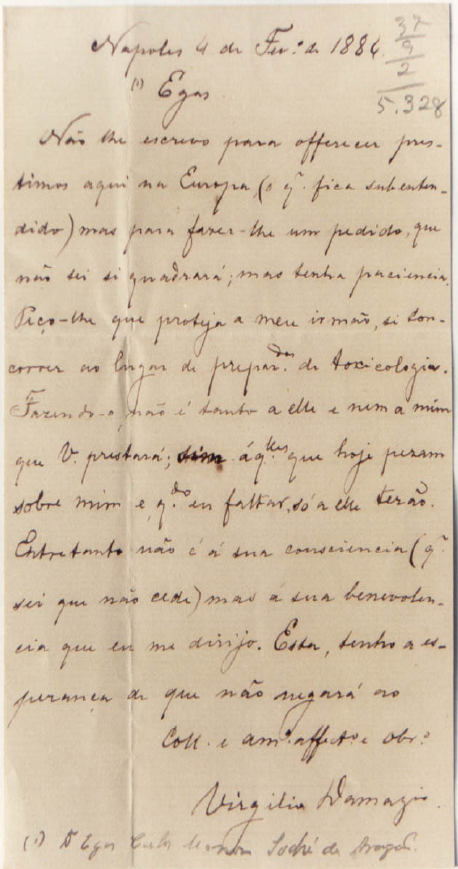 Napoles 4 de Fev.º de 1886
37
9
2
5.328
(1) Egas
Não lhe escrevo para offerecer pres-
timos aqui na Europa, (o q. fica subenten-
dido) mas para fazer-lhe um pedido, que
não sei si quadrará; mas tenha paciencia.
Peço-lhe que proteja a meu irmão, si con-
correr ao lugar de prepar.dor de toxicologia.
Fazendo-o, não é tanto a elle e nem a mim
que V. prestará; sim áq.lles que hoje pezam
sobre mim e, q.do eu faltar, só a elle terão.
Entretanto não é á sua consciencia (q.
sei que não cede) mas á sua benevolen-
cia que eu me dirijo. Esta, tenho a es-
perança de que não negará ao
Coll. e am.º affect.º e obr.º
Virgilio Damazio.
(1) Dr Egas Carlos Moniz Sodré de Aragão